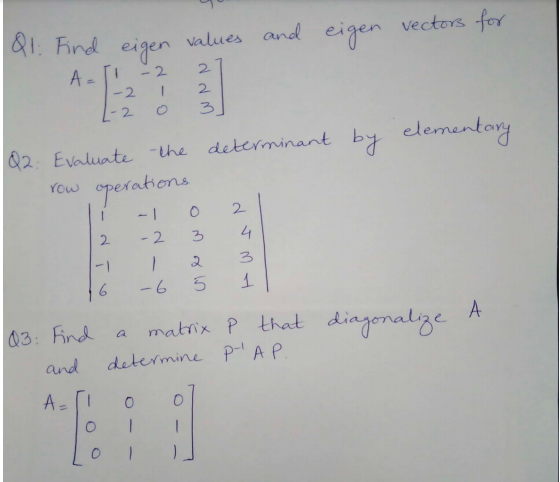 Q1: Find eigen values and eigen vectors for
A = [1 -2 2
-2 1 2
-2 0 3]
Q2: Evaluate the determinant by elementary
row operations
| 1 -1 0 2 |
| 2 -2 3 4 |
| -1 1 2 3 |
| 6 -6 5 1 |
Q3: Find a matrix P that diagonalize A
and determine P⁻¹ A P.
A = [1 0 0
0 1 1
0 1 1]